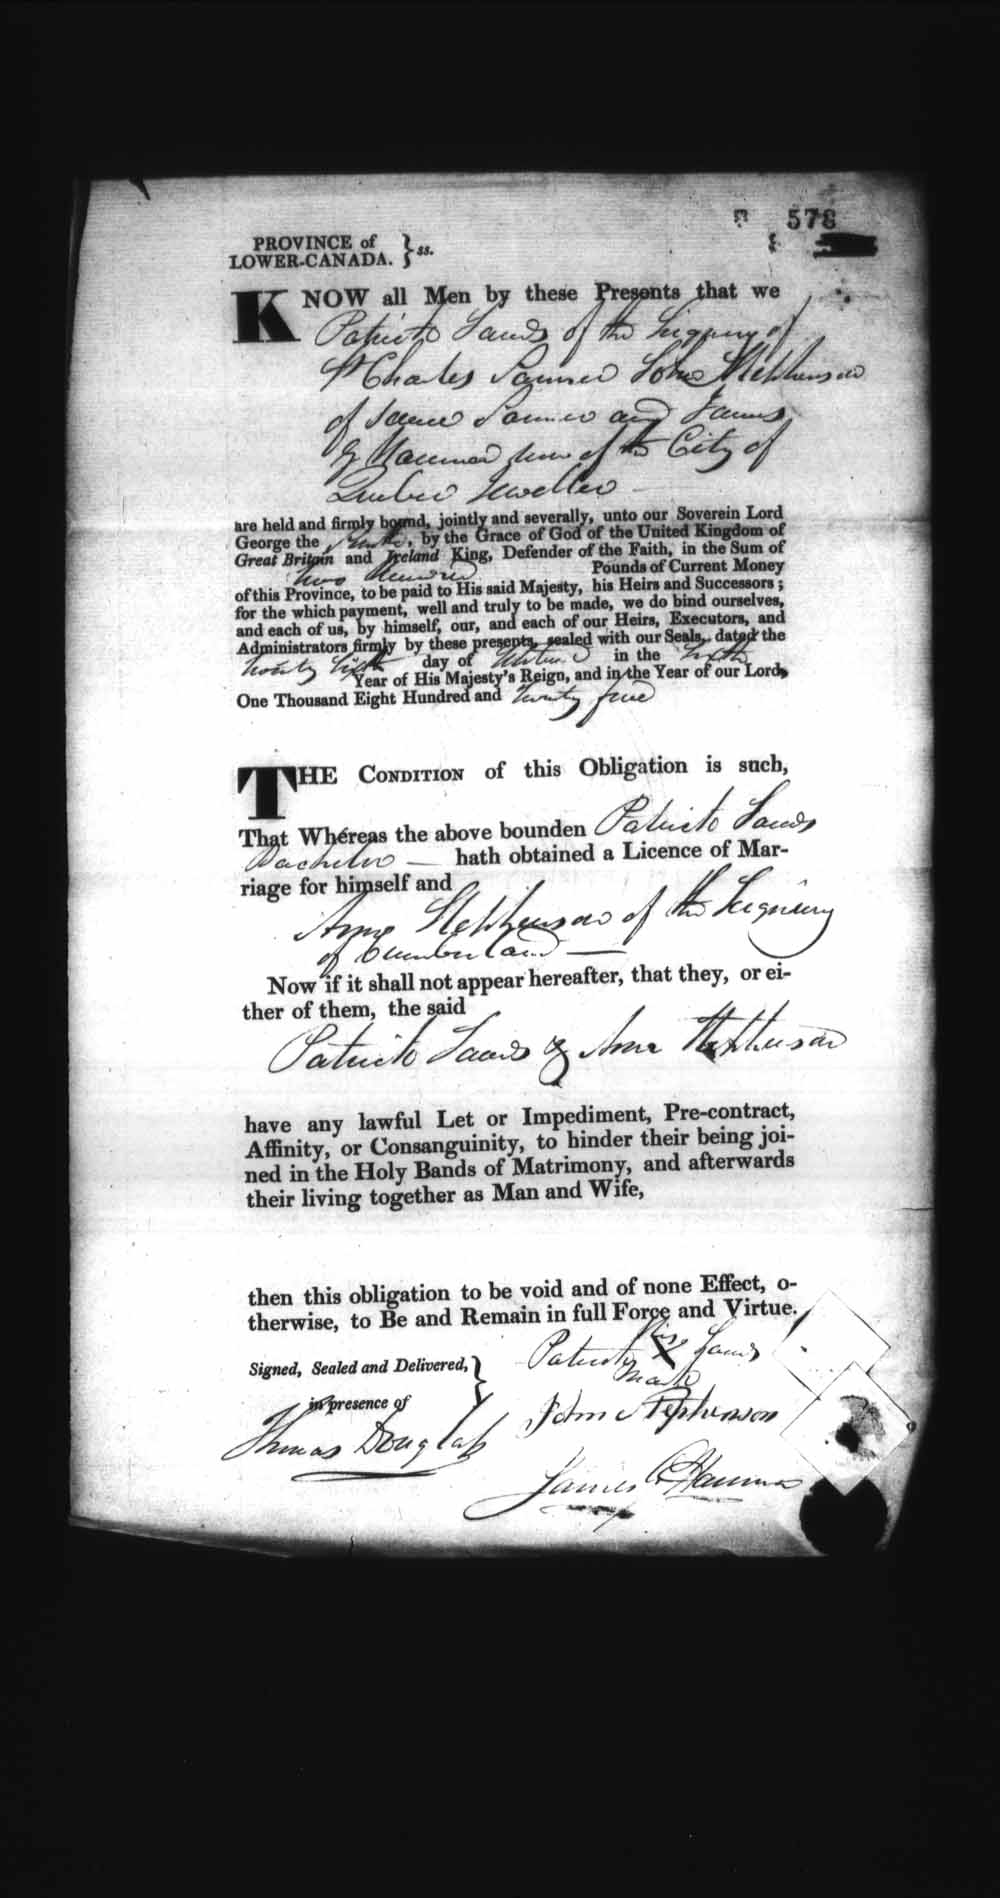 578
PROVINCE of
LOWER-CANADA. } ss.
KNOW all Men by these Presents that we
Patrick Sands of the Signory of
St Charles Farmer John Stephenson
of same Farmer and James
of the City of
Quebec Jeweller
are held and firmly bound, jointly and severally, unto our Soverein Lord
George the Fourth, by the Grace of God of the United Kingdom of
Great Britain and Ireland King, Defender of the Faith, in the Sum of
two hundred Pounds of Current Money
of this Province, to be paid to His said Majesty, his Heirs and Successors;
for the which payment, well and truly to be made, we do bind ourselves,
and each of us, by himself, our, and each of our Heirs, Executors, and
Administrators firmly by these presents, sealed with our Seals, dated the
twenty sixth day of in the sixth
Year of His Majesty's Reign, and in the Year of our Lord,
One Thousand Eight Hundred and twenty five
THE CONDITION of this Obligation is such,
That Whereas the above bounden Patrick Sands
Bachelor — hath obtained a Licence of Mar-
riage for himself and
Anne Stephenson of the Seigniory
of Cumberland —
Now if it shall not appear hereafter, that they, or ei-
ther of them, the said
Patrick Sands & Anne Stephenson
have any lawful Let or Impediment, Pre-contract,
Affinity, or Consanguinity, to hinder their being joi-
ned in the Holy Bands of Matrimony, and afterwards
their living together as Man and Wife,
then this obligation to be void and of none Effect, o-
therwise, to Be and Remain in full Force and Virtue.
Patrick his X mark Sands
Signed, Sealed and Delivered, }
in presence of
John Stephenson
Thomas Douglass
James